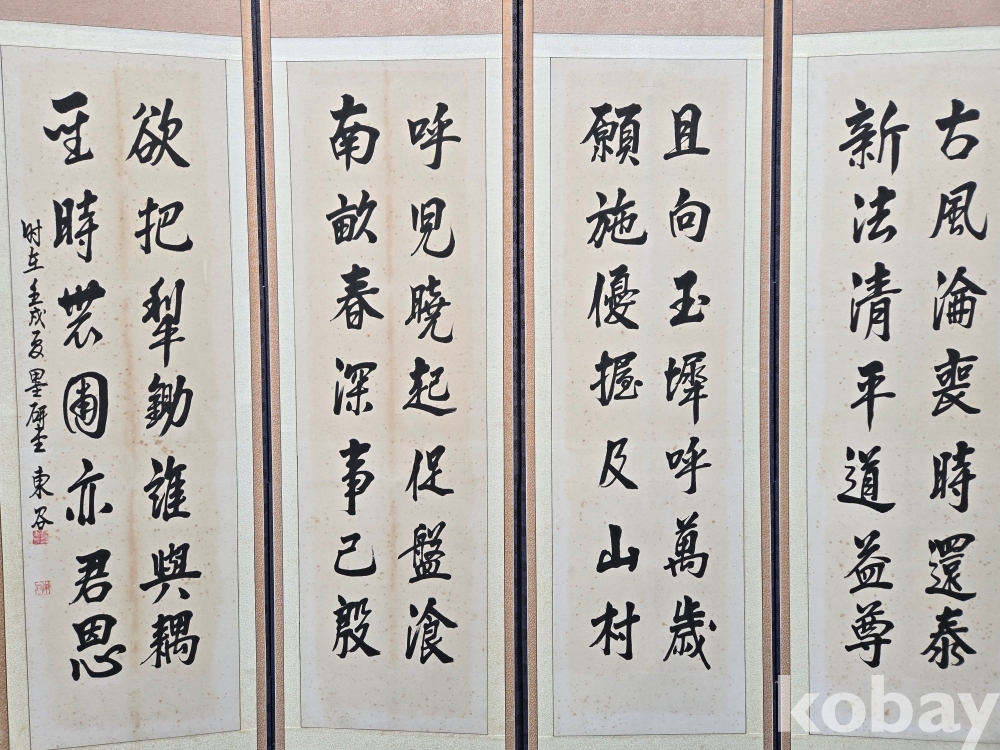 古風淪喪時還泰
新法淸平道益尊
且向玉墀呼萬歲
願施優握及山村
呼兒曉起促盤飡
南畝春深事已殷
欲把犁鋤誰與耦
聖時農圃亦君恩
时在壬戌夏 墨研堂 東谷
kobay